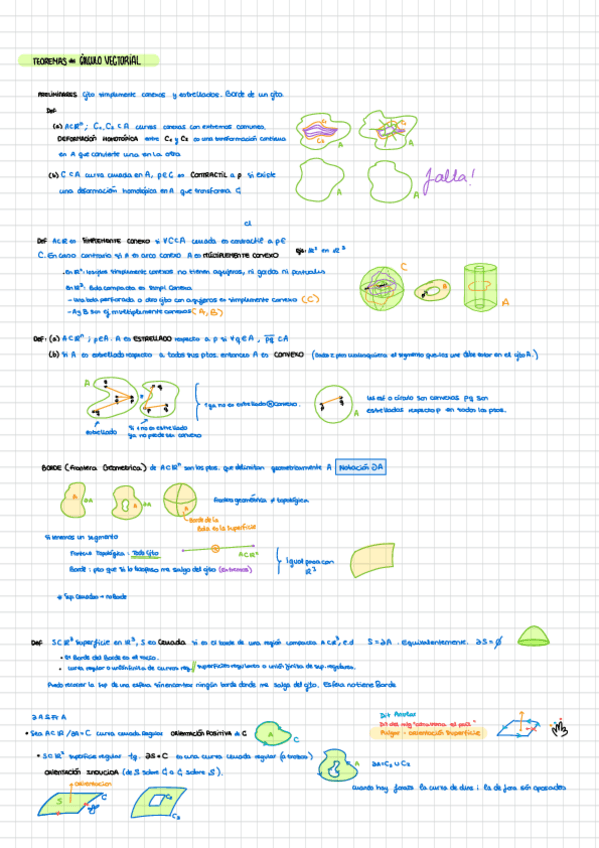 TEOREMAS de CÁLCULO VECTORIAL
PRELIMINARES Cjto simplemente conexos y estrellados. Borde de un cjto.
Def:
(a) A⊂ℝⁿ ; C₁, C₂ ⊂ A curvas conexas con extremos comunes.
DEFORMACIÓN HOMOTÓPICA entre C₁ y C₂ es una transformación continua
en A que convierte una en la otra
(b) C ⊂ A curva cerrada en A, p∈C es CONTRACTIL a p si existe
una deformación homotópica en A que transforma C
falta!
Def A⊂ℝ es SIMPLEMENTE CONEXO si ∀C⊂A cerrada es contractil a p∈
C. En caso contrario si A es arco conexo A es MÚLTIPLEMENTE CONEXO
no tienen agujeros, ni gordos ni puntuales
en ℝ³: Bola compacta es simpl. Conexa
o otro cjto con agujeros es simplemente conexo (C)
- A y B son ej. multiplemente conexos (A, B)
Def: (a) A⊂ℝⁿ ; p∈A. A es ESTRELLADO respecto a p si ∀q∈A, pq ⊂A
(b) Si A es estrellado respecto a todos sus ptos. entonces A es CONVEXO
estrellado
Si no es estrellado
ya no puede ser convexo
círculo son convexos pq son
estrellados respecto p en todos los ptos.
BORDE (Frontera Geométrica) de A⊂ℝⁿ son los ptos. que delimitan geométricamente A Notación ∂A
Frontera geométrica ≠ topológica
Borde de la
bola es la superficie
Si tenemos un segmento
Frontera Topológica: Todo Cjto
Borde: pto que si lo traspaso me salgo del cjto (extremos)
A⊂ℝⁿ
Igual pasa con
ℝ³
* Sup. Cerradas → no Borde
Def S⊂ℝ³ superficie en ℝ³, S es CERRADA si es el borde de una región compacta A⊂ℝ³, e.d S=∂A. Equivalentemente. ∂S=∅
• El Borde del Borde es el vacío.
Puedo recorrer la sup de una esfera sin encontrar ningún borde donde me salga del cjto. Esfera no tiene Borde
• Sea A⊂ℝ /∂A=C curva cerrada regular ORIENTACIÓN POSITIVA de C
Pulgar → orientación superficie
• S⊂ℝ³ superficie regular tq. ∂S=C es una curva cerrada regular (a trozos)
ORIENTACIÓN INDUCIDA (de S sobre C o C sobre S).
orientacion
∂A=C₁∪C₂
cuando hay la curva de dins i la de fora són oposades